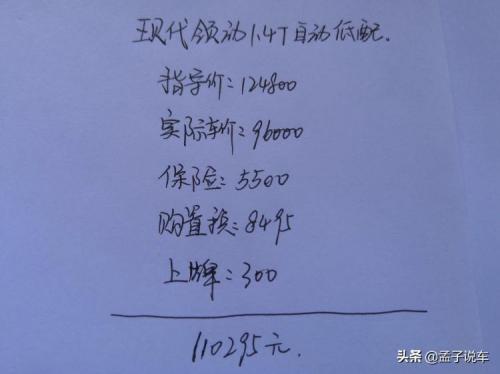 现代领动1.4T自动低配.
指导价:124800
实际车价:96000
保险:5500
购置税:8495
上牌:300
110295元.
头条 @孟子说车